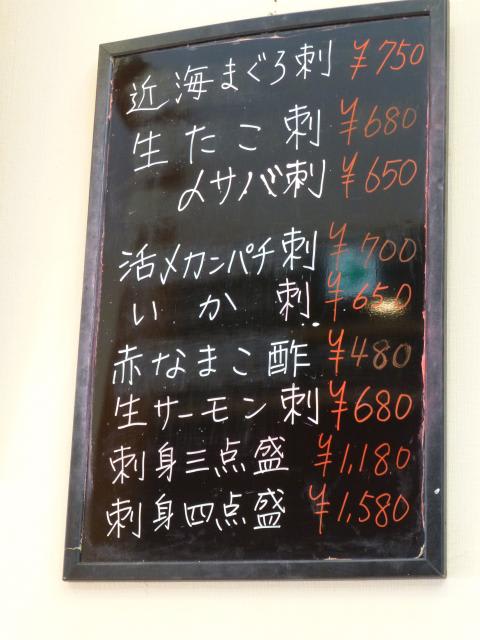 近海まぐろ刺 ¥750
生たこ刺 ¥680
〆サバ刺 ¥650
活〆カンパチ刺 ¥700
いか刺 ¥650
赤なまこ酢 ¥480
生サーモン刺 ¥680
刺身三点盛 ¥1,180
刺身四点盛 ¥1,580